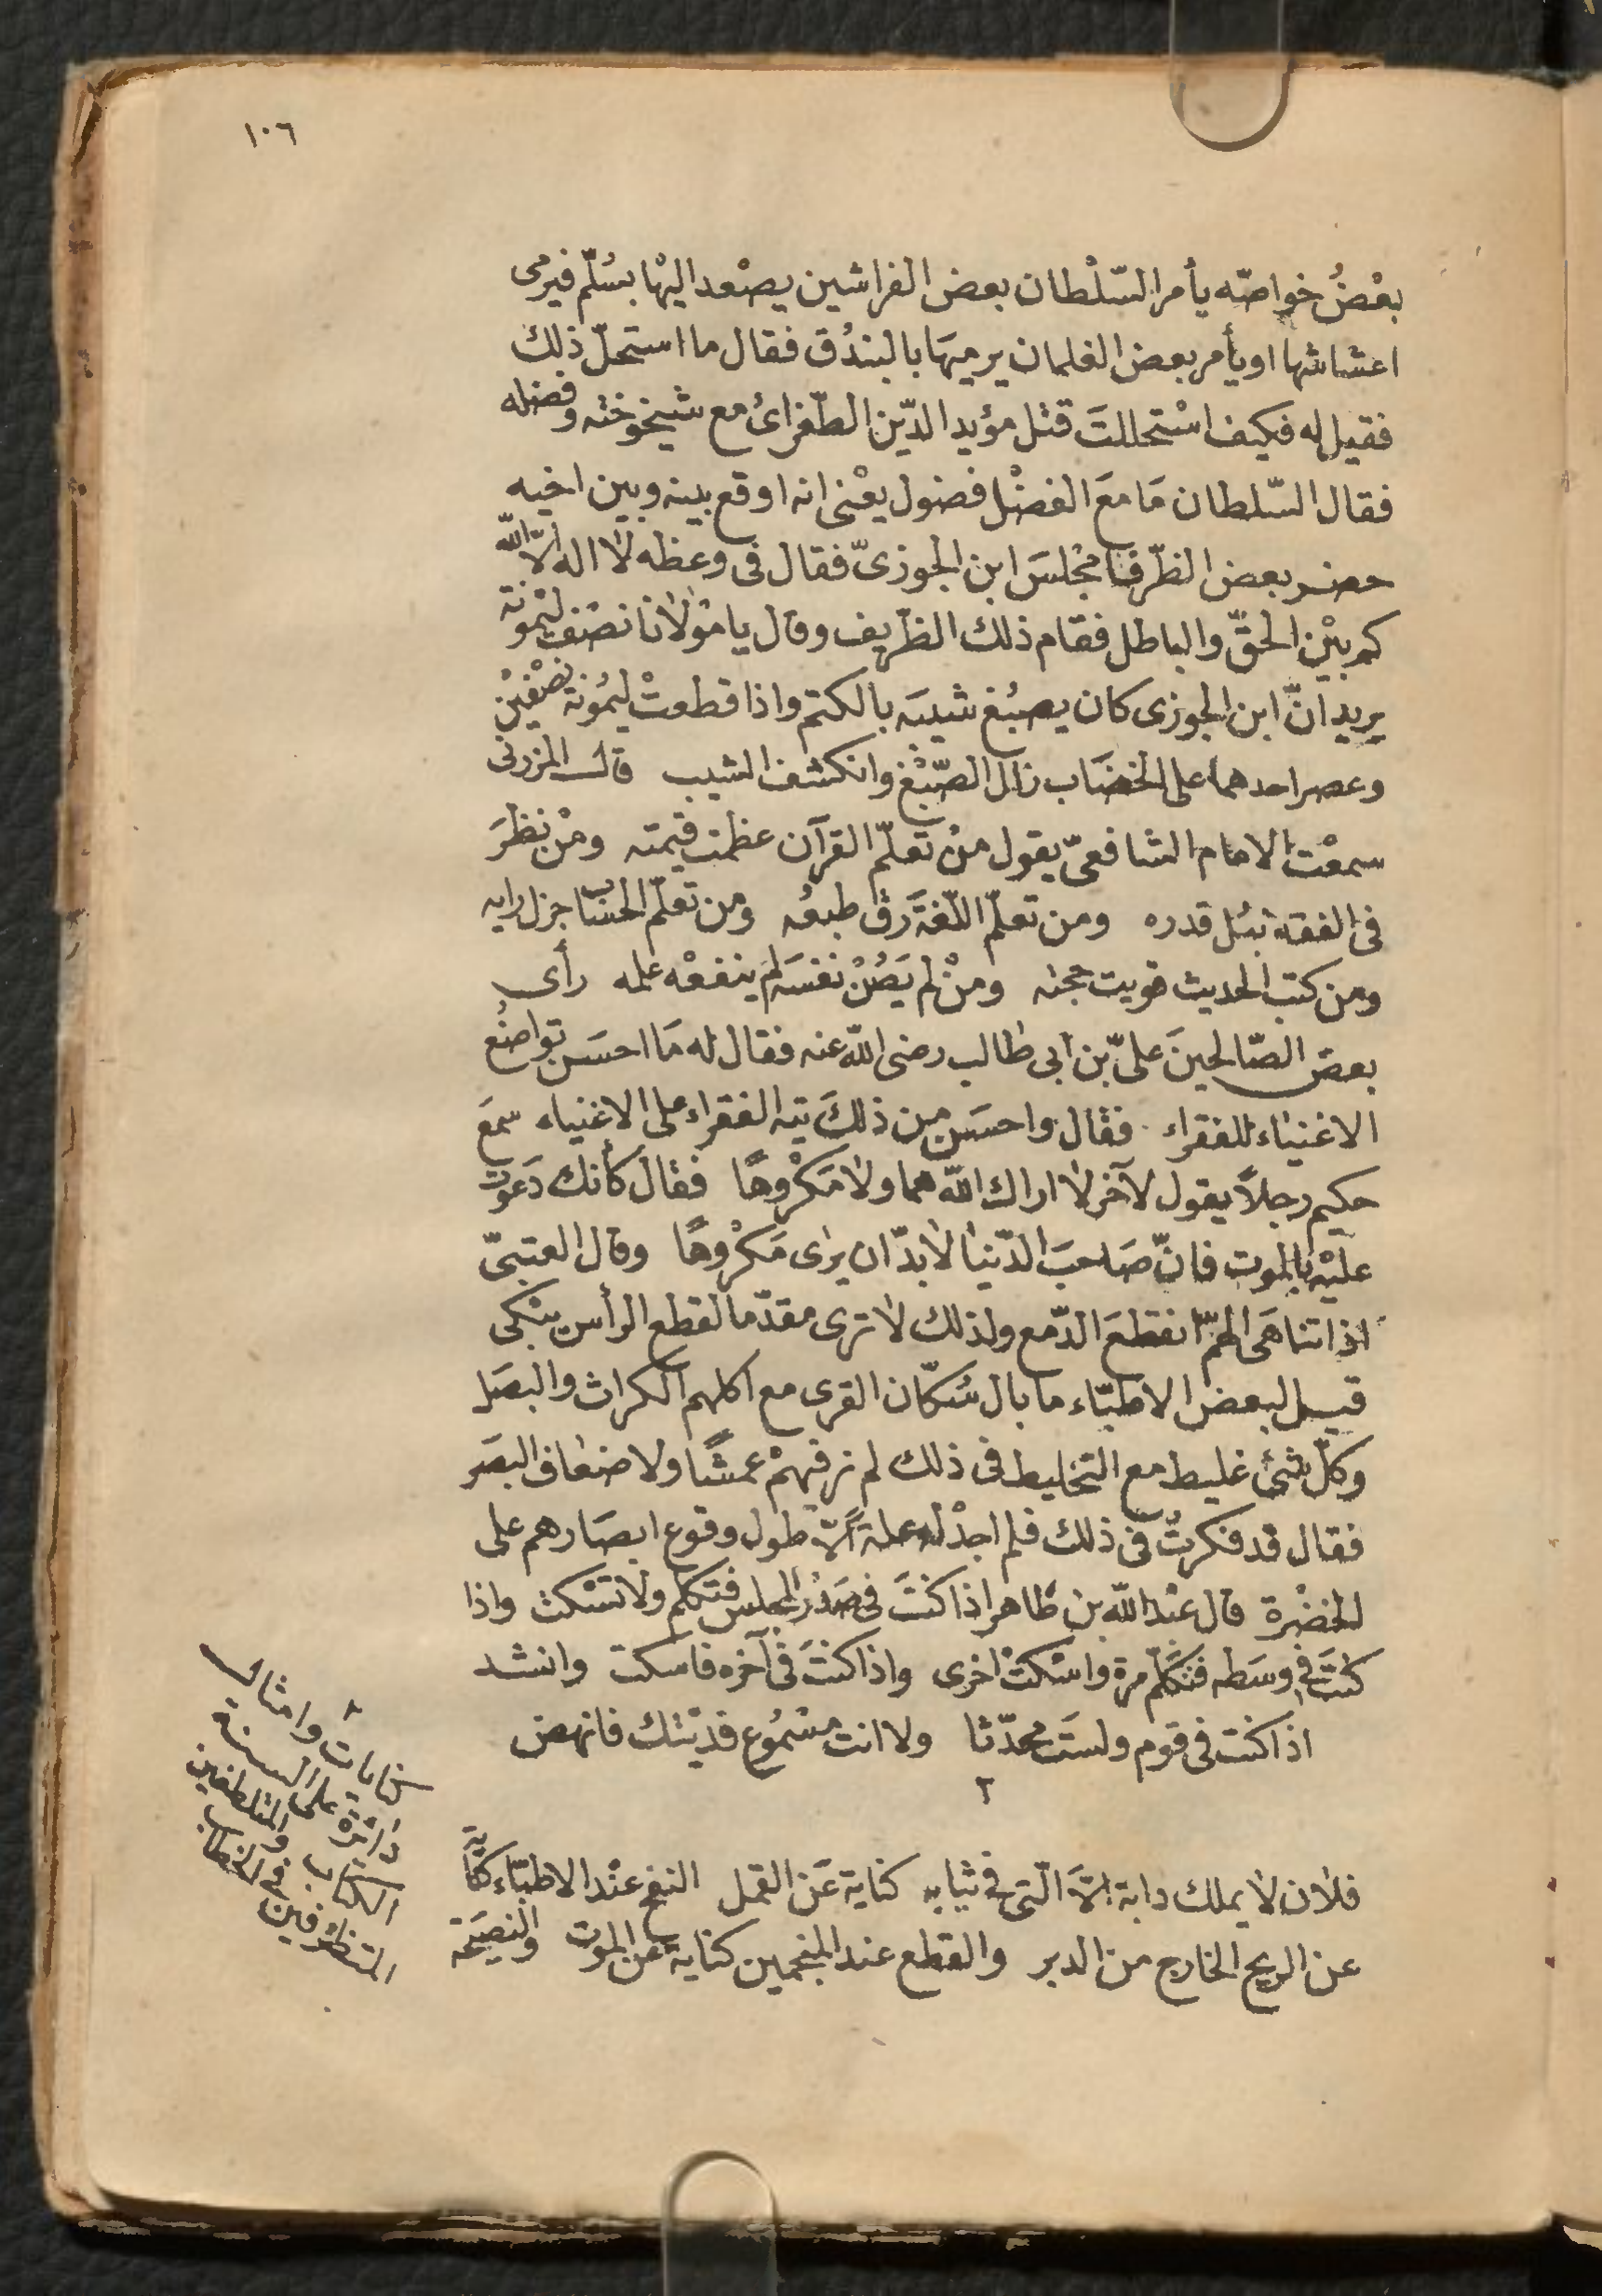 ١٠٦
بعْضُ خواصّه يأمر السّلْطان بعض الفراشين يصْعد اليْها بسُلّم فيرمى
اعشاشها او يأمر بعض الغلمان يرميهَا بالبندُق فقال ما استحلّ ذلك
فقيل له فكيف اسْتحللتَ قتْل مؤيد الدّين الطّغرائ مع شيخوخته وفضله
فقال السّلطان مَا معَ الفضْل فضول يعْنى انه اوقع بينه وبين اخيه
حضر بعض الظّرفا مجْلسَ ابن الجوزىّ فقال فى وعظه لا اله الّا الله
كم بيْن الحقّ والباطل فقام ذلك الظريف وقال يا موْلانا نصْف ليمونة
يريد انّ ابن الجوزى كان يصبُغ شيبَه بالكتم واذا قطعتْ ليمُونة نصْفيْن
وعصر احدهما على الخضَاب زال الصّبْغ وانكشف الشيب قال المزرنى
سمعْت الامام الشافعىّ يقول منْ تعلّم القرآن عظمت قيمته ومنْ نظرَ
فى الفقه نبُل قدره ومن تعلّم اللّغَة رقّ طبعُه ومن تعلّم الحسَاب جزل رايه
ومن كتب الحديث قويت حجته ومنْ لم يَصُنْ نفسَه لم ينفعْه علمه رأى
بعض الصّالحينَ علىّ بن ابى طالب رضى الله عنه فقال له مَا احسَن تواضُع
الاغنيَاء للفقراء فقال واحسَن من ذلكَ تيه الفقراء على الاغنياء سمَع
حكيم رجلاً يقول لآخر لا اراك الله هما ولا مَكْروهًا فقال كأنك دَعوت
عليْه بالموت فانّ صَاحبَ الدّنيَا لا بدّ ان يرى مَكرْوهًا وقال العتبىّ
اذا تناهَى الهمّ انقطعَ الدّمع ولذلك لا ترى مقدّما لقطع الرأس يبْكى
قيل لبعض الاطبّاء ما بال سُكّان القرى مع اكلهم الكراث والبصَل
وكلّ شئ غليط مع التخليط فى ذلك لم نر فيهمْ عمشًا ولا ضعاف البصَر
فقال قد فكرتُ فى ذلك فلم اجدْ له علة الّا طول وقوع ابصَارهم على
الخضْرة قال عبْد الله بن طاهر اذا كنتَ فى صَدْر المجلس فتكلّم ولا تسْكت واذا
كنتَ فى وسَطه فتكلّم مرة واسْكتْ اخرى واذا كنتَ فى آخره فاسكت وانشد
اذا كنت فى قوم ولستَ محدّثا ولا انت مسْمُوع فديْتك فانهض
٢
فلان لا يملك دابة الَّا الّتى فى ثيابه كناية عَن القمل النفخ عنْد الاطبّاء كناية
عن الريح الخارج من الدبر والقطع عند المنجمين كناية عن الموت والنصيَحَة
كنايات وامثال
دائرة على السنة
الكتاب والمتلطفين
المتظرفين فى الخطاب